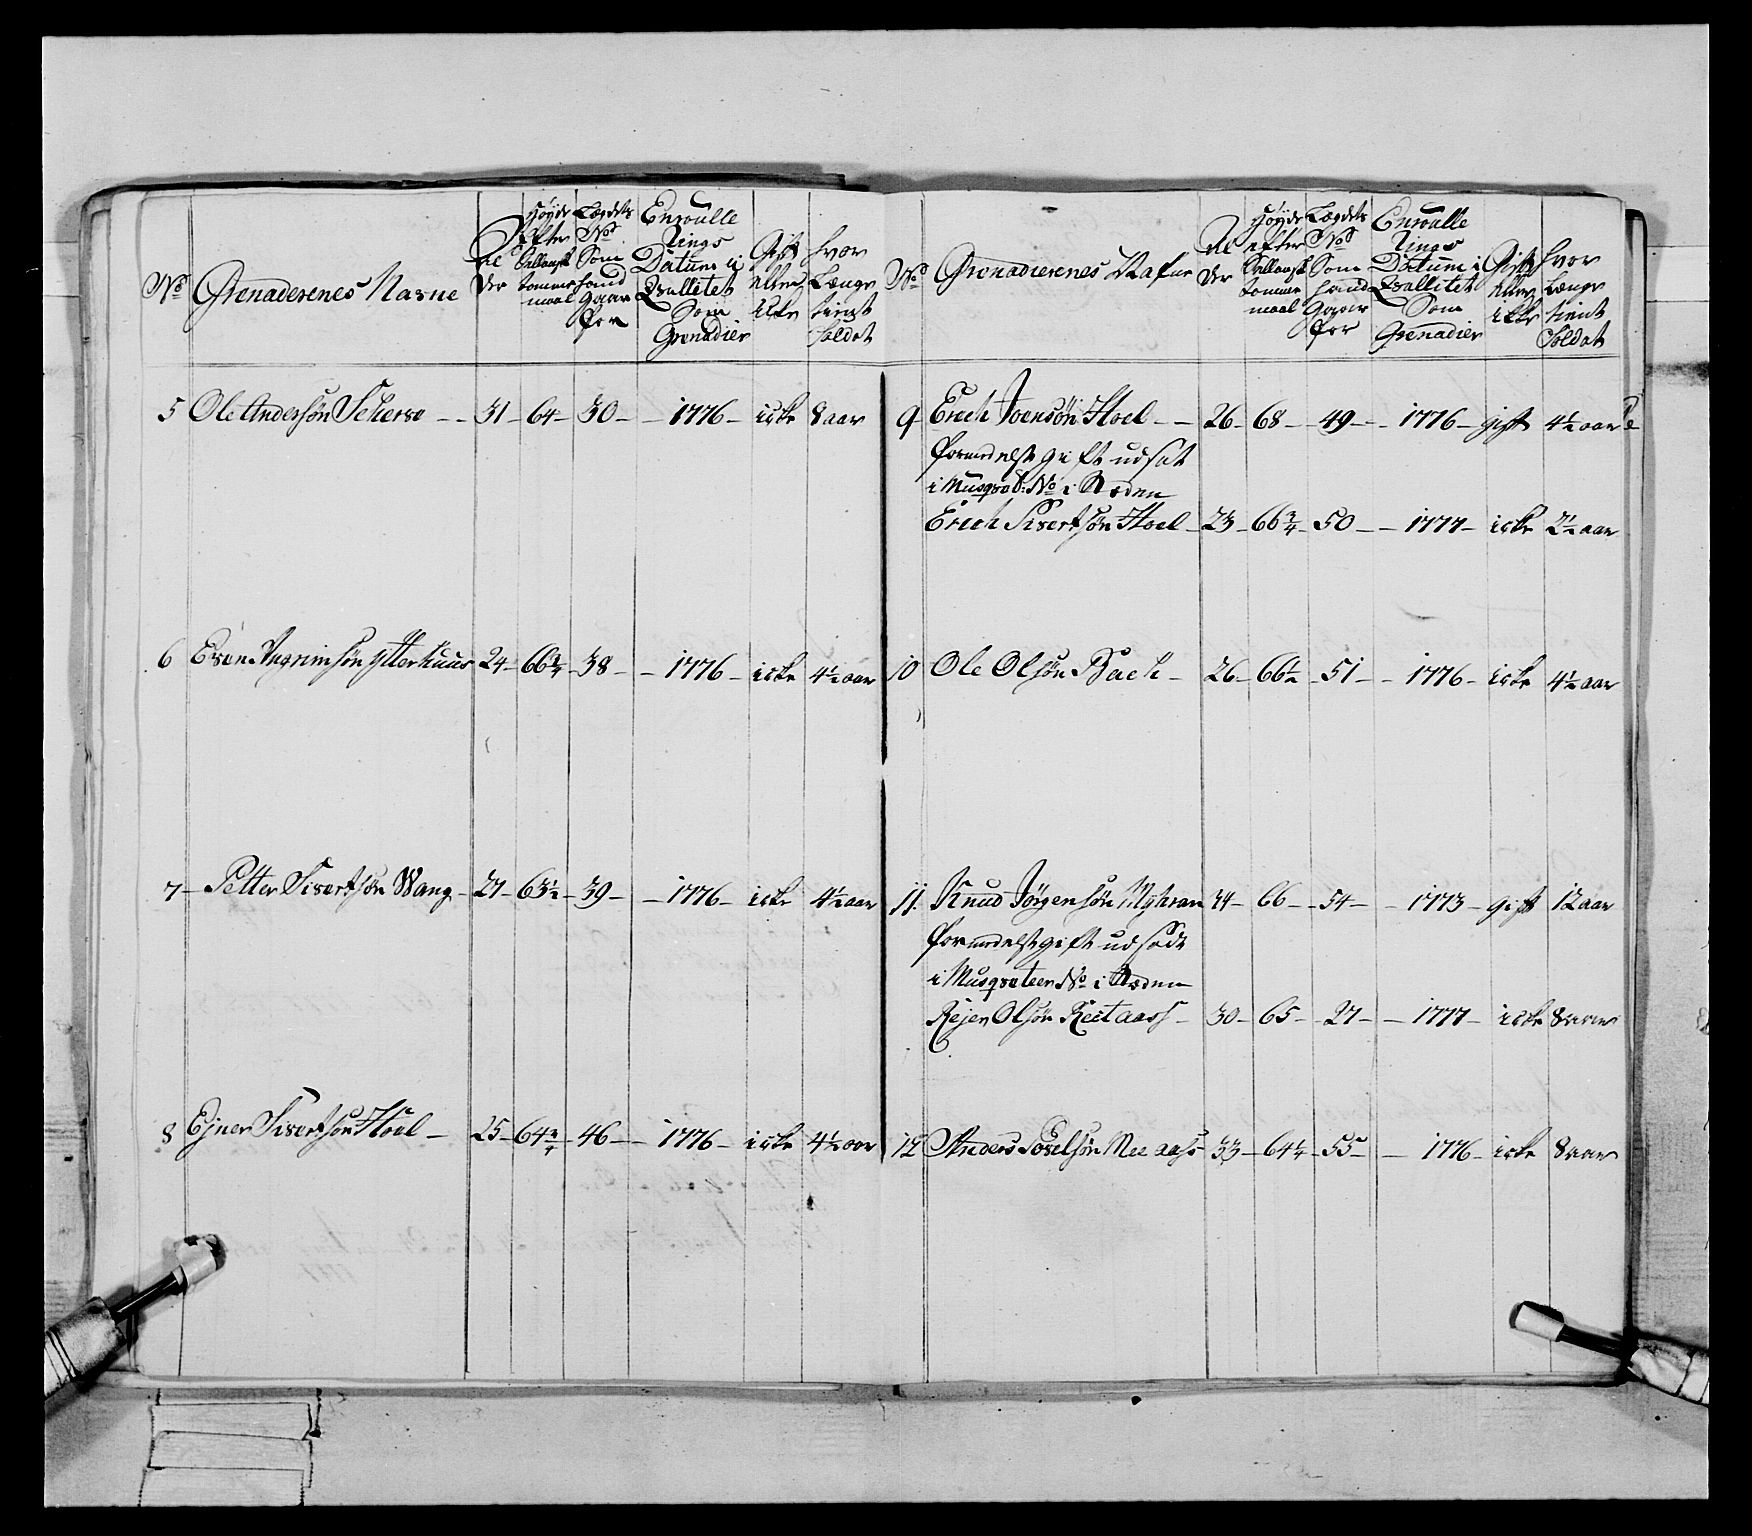 No
Grenaderenes Nafne
Al
der
Høyde
Efter
tomme
maal
Lægdets
No
Som
hand
Gaar
for
Enroulle
rings
Datum i
Qvallitet
Som
Grenadier
Gift
eller
icke
hvor
Længe
tient
Soldat
5 Ole Andersøn Schersø - - 31 - 64 - 30 - - 1776 - icke 8 aar
6 Even Ingrimsøn Ytterhuus 24 - 66 3/4 - 38 - - 1776 - icke 4 1/2 aar
7 - Petter Sivertsøn Wang - 27 - 63 1/2 - 39 - - 1776 - icke 4 1/2 aar
8 Ejner Sivertsøn Hoel - 25 - 64 3/4 - 46 - - 1776 - icke 4 1/2 aar
No
Grenadierenes Nafne
Al
der
Høyde
efter
tomme
maal
Lægdets
No
Som
hand
Gaaer
for
Enroulle
rings
Datum i
Qvallitet
Som
Grenadier
Gift
eller
icke
hvor
Længe
tient
Soldat
9 Erich Joensøn Hoel - - 26 - 68 - 49 - - 1776 - gift 4 1/2 aar
formedelst gift udsat
i Musqvet: No i Ræden
Erich Sivertsøn Hoel - 23 - 66 3/4 - 50 - - 1777 - icke 2 1/2 aar
10 Ole Olsøn Bach - 26 - 66 1/2 - 51 - - 1776 - icke 4 1/2 aar
11. Knud Jørgensøn Myhran 34 - 66 - 54 - - 1773 - gift 12 aar
formedelst gift udsadt
i Musqveteer No i Ræden
Rejer Olsøn Reitaass - 30 - 65 - 27 - - 1777 - icke 8 aar
12 Anders Povelsøn Mee aass 33 - 64 1/4 - 55 - - 1776 - icke 8 aar